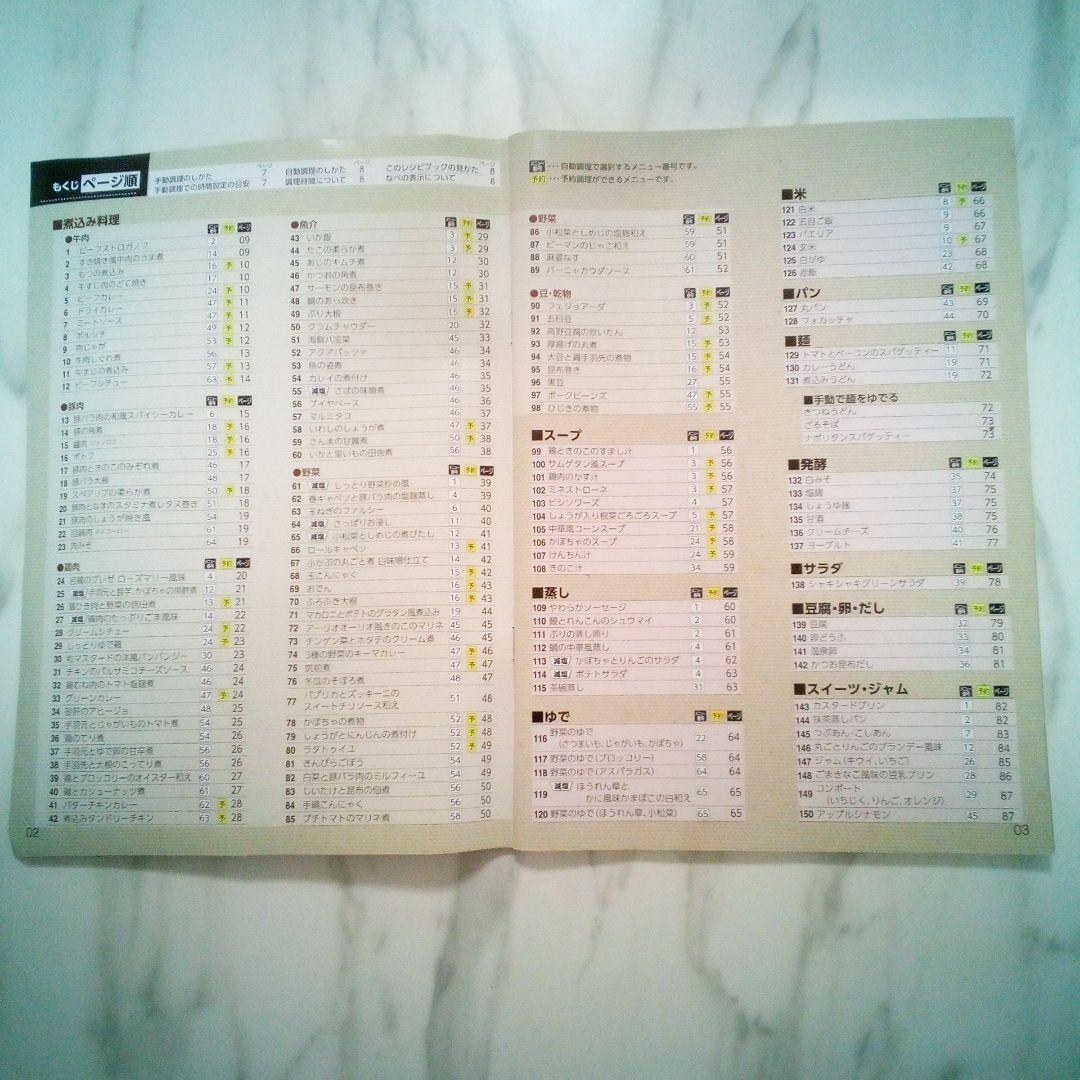 もくじ ページ順
手動調理のしかた 7
手動調理での時間設定の目安 7
自動調理のしかた 8
調理時間について 8
このレシピブックの見かた 8
なべの表示について 8
■煮込み料理
●牛肉
1 ビーフストロガノフ 2 09
2 すき焼き風牛肉のうま煮 14 09
3 もつの煮込み 16 予 10
4 牛すじ肉のどて焼き 17 10
5 ビーフカレー 24 予 10
6 ドライカレー 47 予 11
7 ミートソース 47 予 11
8 ボルシチ 49 予 12
9 肉じゃが 53 予 12
10 牛肉しぐれ煮 56 13
11 牛すじの煮込み 57 予 13
12 ビーフシチュー 63 予 14
●豚肉
13 豚バラ肉の和風スパイシーカレー 6 15
14 豚の角煮 18 予 16
15 醤肉 18 予 16
16 ポトフ 25 予 16
17 豚肉ときのこのみぞれ煮 46 17
18 豚バラ大根 48 17
19 スペアリブの柔らか煮 50 予 18
20 豚肉となすのスタミナ煮レタス巻き 51 18
21 豚肉のしょうが焼き風 54 19
22 回鍋肉 61 19
23 肉みそ 64 19
●鶏肉
24 若鶏のブレゼ ローズマリー風味 4 20
25 減塩/手羽元と長芋、かぼちゃの黒酢煮 12 21
26 鶏ひき肉と野菜の信田煮 13 予 21
27 減塩/鶏肉のたっぷりごま風味 14 22
28 クリームシチュー 24 予 22
29 しっとりゆで鶏 24 予 23
30 粒マスタードの洋風バンバンジー 30 23
31 チキンのバルサミコチーズソース 46 24
32 鶏むね肉のトマト塩麹煮 46 24
33 グリーンカレー 47 予 24
34 砂肝のアヒージョ 48 25
35 手羽元とじゃがいものトマト煮 54 25
36 鶏のてり煮 54 26
37 手羽元とゆで卵の甘辛煮 56 26
38 手羽先と大根のこってり煮 56 26
39 鶏とブロッコリーのオイスター和え 60 27
40 鶏とカシューナッツ煮 61 27
41 バターチキンカレー 62 予 28
42 煮込みタンドリーチキン 63 予 28
02
●魚介
43 いか飯 3 予 29
44 たこの柔らか煮 3 予 29
45 あじのキムチ煮 12 30
46 かつおの角煮 12 30
47 サーモンの昆布巻き 15 予 31
48 鯛のあら炊き 15 予 31
49 ぶり大根 15 予 32
50 クラムチャウダー 20 32
51 海鮮八宝菜 45 33
52 アクアパッツァ 46 34
53 魚の姿煮 46 34
54 カレイの煮付け 46 35
55 減塩/さばの味噌煮 46 35
56 ブイヤベース 46 36
57 マルミタコ 46 37
58 いわしのしょうが煮 47 予 37
59 さんまの甘露煮 50 予 38
60 いかと里いもの田舎煮 67 38
●野菜
61 減塩/しっとり野菜炒め風 1 39
62 春キャベツと豚バラ肉の塩麹蒸し 4 39
63 玉ねぎのファルシー 6 40
64 減塩/さっぱりお浸し 11 40
65 減塩/小松菜としいたけの煮びたし 12 41
66 ロールキャベツ 13 予 41
67 小かぶの丸ごと煮 白味噌仕立て 14 42
68 玉こんにゃく 15 予 42
69 おでん 16 予 43
70 ふろふき大根 16 予 43
71 マカロニとポテトのグラタン風煮込み 19 44
72 アーリオオーリオ風きのこのマリネ 45 45
73 チンゲン菜とホタテのクリーム煮 46 45
74 3種の野菜のキーマカレー 47 予 46
75 筑前煮 47 予 46
76 冬瓜のそぼろ煮 48 47
77 パプリカとズッキーニのスイートチリソース煮 51 48
78 かぼちゃの煮物 52 予 48
79 しょうがとにんじんの煮付け 52 予 48
80 ラタトゥイユ 52 予 49
81 きんぴらごぼう 54 49
82 白菜と豚バラ肉のミルフィーユ 54 49
83 しいたけと昆布の佃煮 54 50
84 手綱こんにゃく 54 50
85 プチトマトのマリネ煮 58 50
･･･自動調理で選択するメニュー番号です。
予約･･･予約調理ができるメニューです。
●野菜
86 小松菜としめじの塩麹和え 59 51
87 ピーマンのじゃこ和え 59 51
88 麻婆なす 60 51
89 バーニャカウダソース 61 52
●豆・乾物
90 フェジョアーダ 3 予 52
91 五目豆 5 予 52
92 高野豆腐の炊いたん 12 53
93 厚揚げの丸煮 15 予 53
94 大豆と鶏手羽先の煮物 15 予 54
95 昆布巻き 16 予 54
96 黒豆 27 55
97 ポークビーンズ 47 予 55
98 ひじきの煮物 55 予 55
■スープ
99 鶏ときのこのすまし汁 1 56
100 サムゲタン風スープ 3 予 56
101 鶏肉のかす汁 3 予 57
102 ミネストローネ 3 予 57
103 ビシソワーズ 4 57
104 しょうが入り根菜ごろごろスープ 5 予 57
105 中華風コーンスープ 21 予 58
106 かぼちゃのスープ 24 予 58
107 けんちん汁 24 予 59
108 きのこ汁 34 59
■蒸し
109 やわらかソーセージ 1 60
110 鯵とれんこんのシュウマイ 2 60
111 ぶりの蒸し照り 2 61
112 鯛の中華風蒸し 4 61
113 減塩/かぼちゃとりんごのサラダ 4 62
114 減塩/ポテトサラダ 4 63
115 茶碗蒸し 31 63
■ゆで
116 野菜のゆで（さつまいも、じゃがいも、かぼちゃ） 22 64
117 野菜のゆで（ブロッコリー） 58 64
118 野菜のゆで（アスパラガス） 64 64
119 減塩/ほうれん草とかに風味かまぼこの白和え 65 65
120 野菜のゆで（ほうれん草、小松菜） 65 65
■米
121 白米 8 予 66
122 五目ご飯 9 66
123 パエリア 9 67
124 玄米 10 予 67
125 白がゆ 23 68
126 赤飯 42 68
■パン
127 丸パン 43 69
128 フォカッチャ 44 70
■麺
129 トマトとベーコンのスパゲッティー 11 71
130 カレーうどん 19 71
131 煮込みうどん 19 72
■手動で麺をゆでる
きつねうどん 72
ざるそば 73
ナポリタンスパゲッティー 73
■発酵
132 白みそ 35 74
133 塩麹 37 75
134 しょうゆ麹 37 75
135 甘酒 38 75
136 クリームチーズ 40 76
137 ヨーグルト 41 77
■サラダ
138 シャキシャキグリーンサラダ 39 78
■豆腐・卵・だし
139 豆腐 32 79
140 卵どうふ 33 80
141 温泉卵 34 81
142 かつお昆布だし 36 81
■スイーツ・ジャム
143 カスタードプリン 1 82
144 抹茶蒸しパン 2 82
145 つぶあん・こしあん 7 83
146 丸ごとりんごのブランデー風味 12 84
147 ジャム（キウイ、いちご） 26 85
148 ごまきなこ風味の豆乳プリン 28 86
149 コンポート（いちじく、りんご、オレンジ） 29 87
150 アップルシナモン 45 87
03